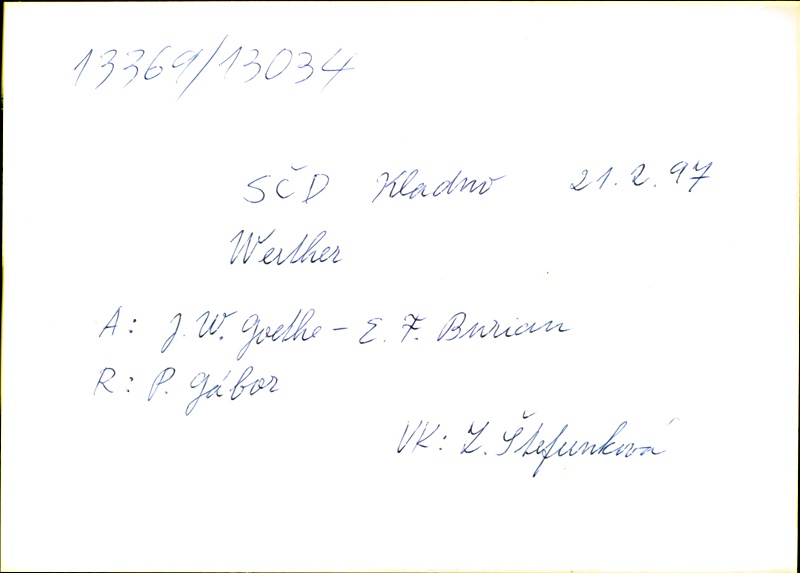 13369/13034
SČD Kladno 21.2.97
Werther
A: J. W. Goethe - E. F. Burian
R: P. Gábor
VK: Z. Štefunková